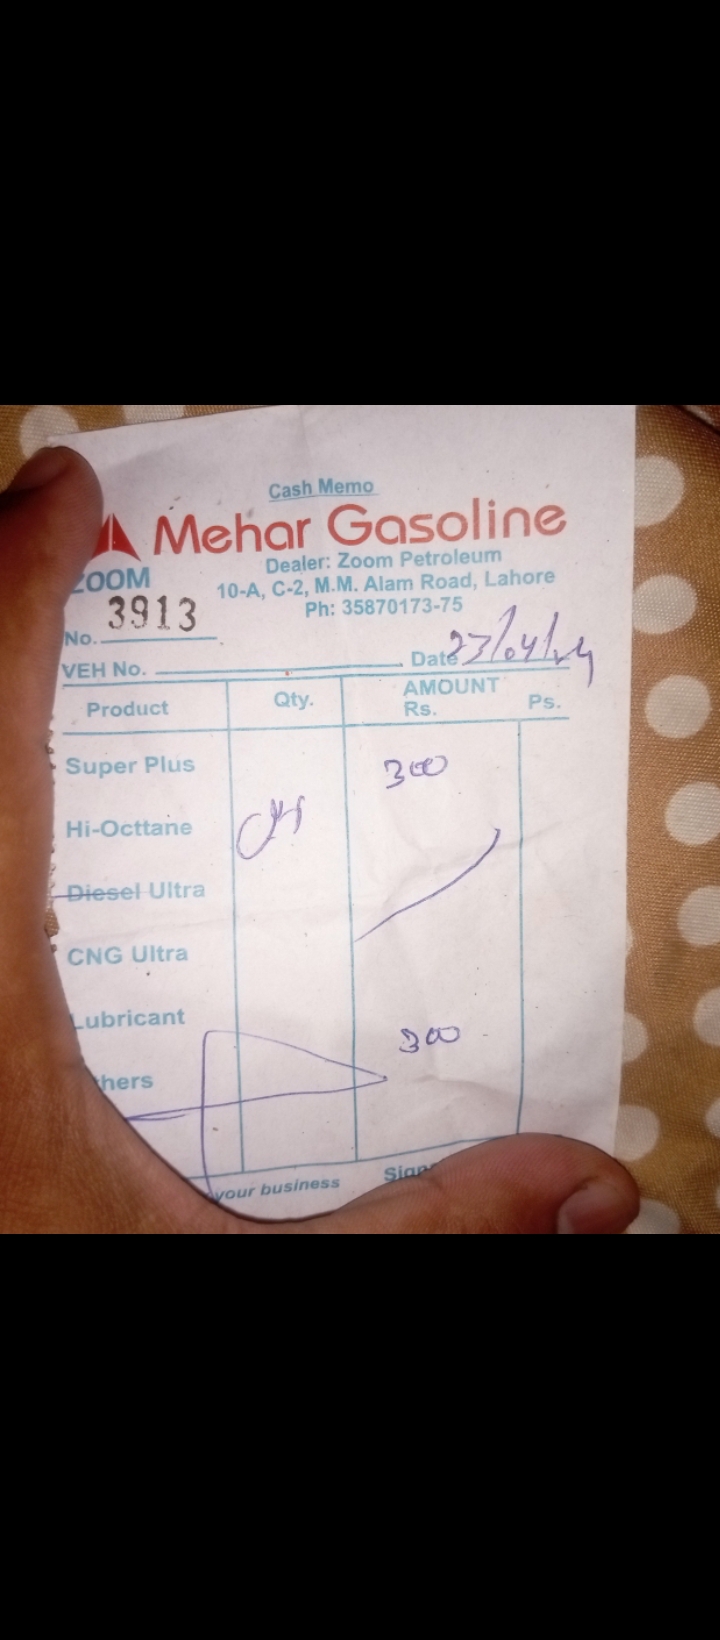 Cash Memo
Mehar Gasoline
ZOOM
Dealer: Zoom Petroleum
10-A, C-2, M.M. Alam Road, Lahore
Ph: 35870173-75
No. 3913
VEH No. Date 23/04/24
Product Qty. AMOUNT Rs. Ps.
Super Plus 300
Hi-Octtane
Diesel Ultra
CNG Ultra
Lubricant
300
hers
your business Sign